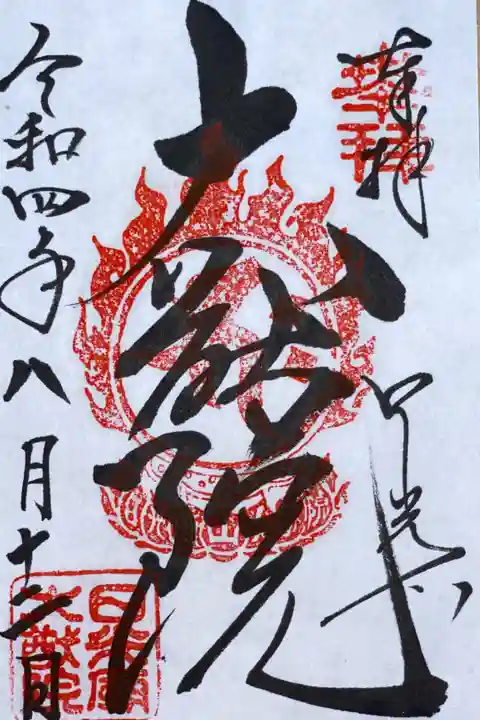 奉拝
日光山
大猷院
令和四年八月十二日
日光廟
大猷院